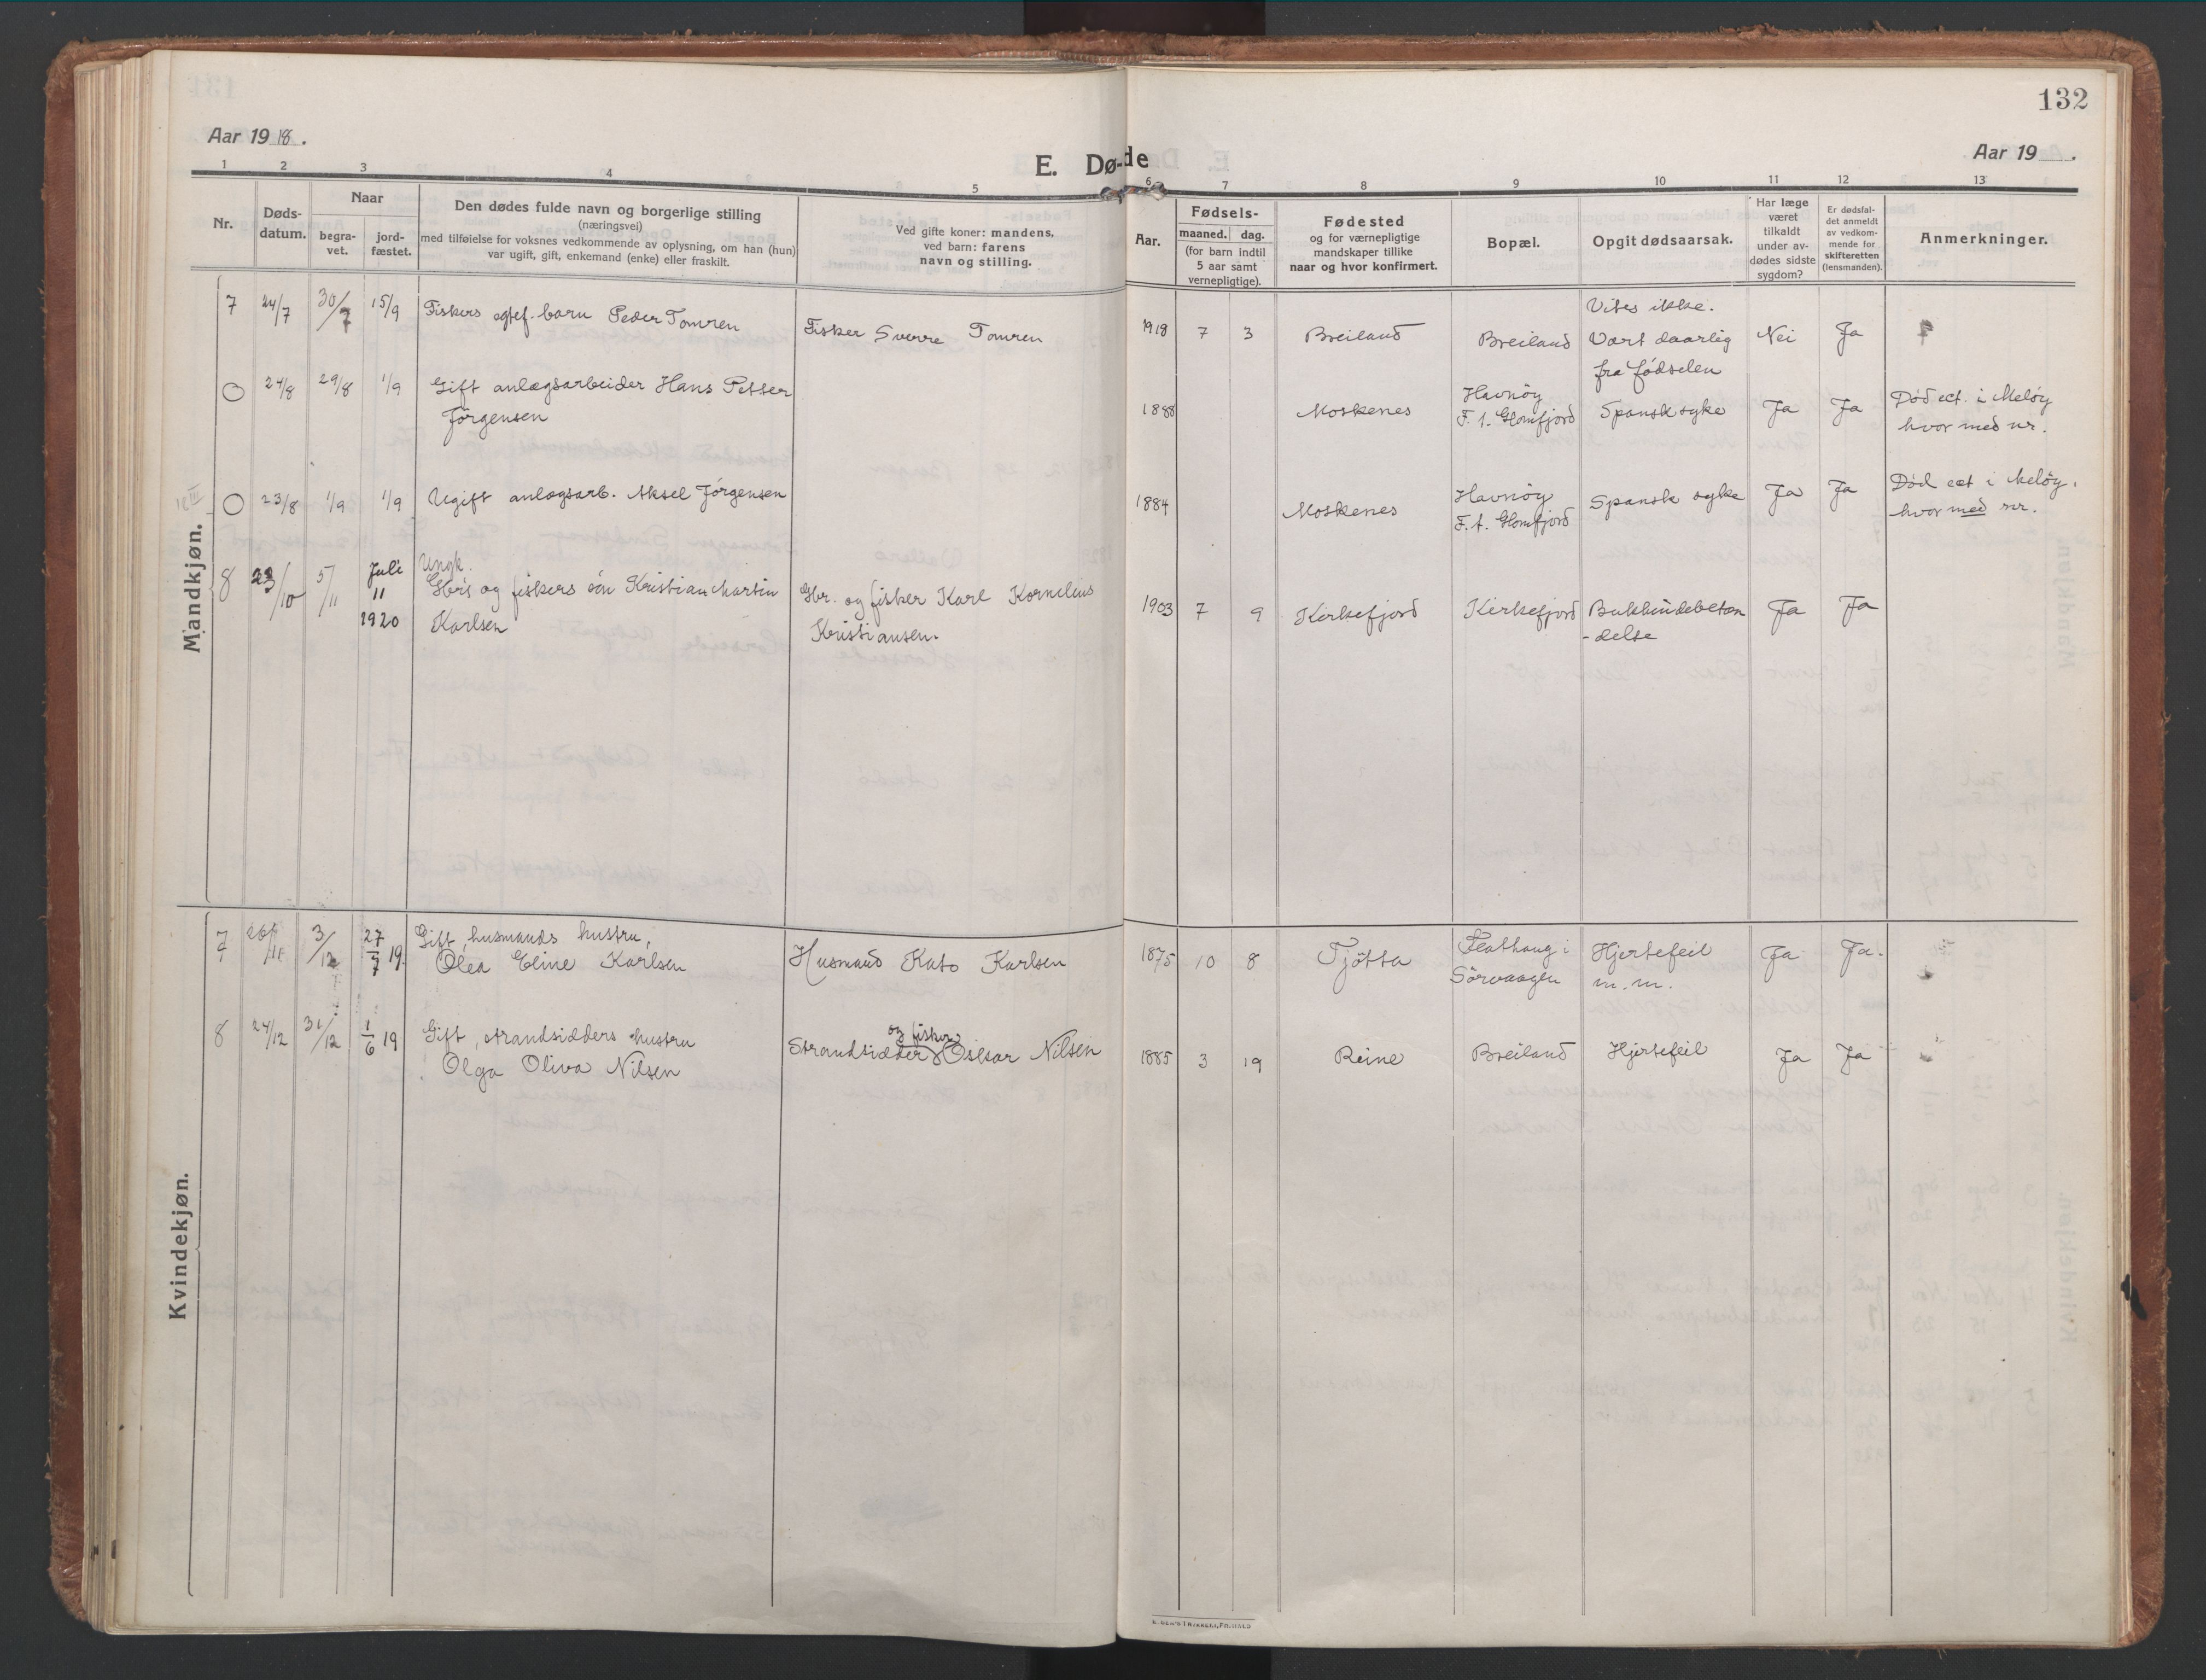 132
Aar 1918.
E. Døde
Aar 19 .
1 2 3 4 5 6 7 8 9 10 11 12 13
Nr.
Døds-
datum.
Naar
begra-
vet.
jord-
fæstet.
Den dødes fulde navn og borgerlige stilling
(næringsvei)
med tilføielse for voksnes vedkommende av oplysning, om han (hun)
var ugift, gift, enkemand (enke) eller fraskilt.
Ved gifte koner: mandens,
ved barn: farens
navn og stilling.
Aar.
Fødsels-
maaned. dag.
(for barn indtil
5 aar samt
vernepligtige).
Fødested
og for værnepligtige
mandskaper tillike
naar og hvor konfirmert.
Bopæl.
Opgit dødsaarsak.
Har læge
været
tilkaldt
under av-
dødes sidste
sygdom?
Er dødsfal-
det anmeldt
av vedkom-
mende for
skifteretten
(lensmanden).
Anmerkninger.
Mandkjøn.
7 24/7 30/7 15/9 Fiskers egtef. barn Peder Tomren
Fisker Sverre Tomren
1918 7 3 Breiland Breiland
Vites ikke.
Vært daarlig
fra fødselen
Nei Ja
O 24/8 29/8 1/9 Gift anlægsarbeider Hans Petter
Jörgensen
1888 Moskenes
Havnöy
F. t. Glomfjord
Spansk syke Ja Ja
Död ect. i Melöy
hvor med nr.
O 23/8 1/9 1/9 Ugift anlægsarb. Aksel Jörgensen
1884 Moskenes
Havnöy
F. t. Glomfjord
Spansk syke Ja Ja
Död ect i Melöy,
hvor med nr.
8 23/10 5/11 Juli
11
1920
Ungk.
Gbr's og fiskers sön Kristian Martin
Karlsen
Gbr. og fisker Karl Kornelius
Kristiansen.
1903 7 9 Kirkefjord Kirkefjord
Bukhindebetæn
-delse
Ja Ja
Kvindekjøn.
7 26/11 3/12 27/7 19.
Gift, husmands hustru,
Olea Eline Karlsen
Husmand Kato Karlsen
1875 10 8 Tjötta
Flathaug i
Sörvaagen
Hjertefeil
m. m.
Ja Ja.
8 24/12 31/12 1/6 19
Gift, strandsidders hustru
Olga Oliva Nilsen
og fisker
Strandsidder Oskar Nilsen
1885 3 19 Reine Breiland Hjertefeil Ja Ja